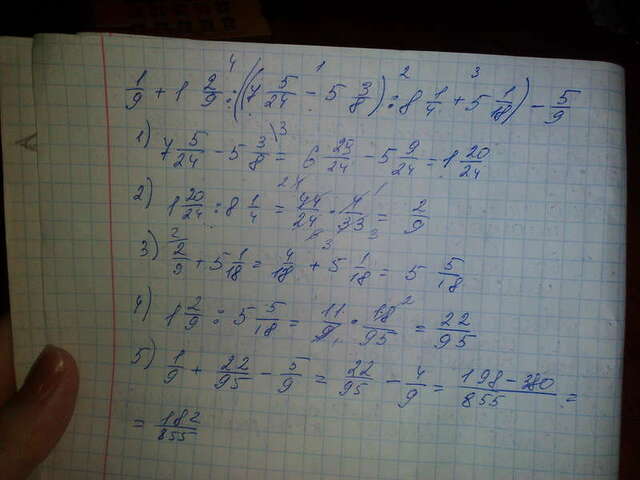 4 1 2 3
1/9 + 1 2/9 : ((7 5/24 - 5 3/8) : 8 1/4 + 5 1/18) - 5/9
1) 7 5/24 - 5 3/8 \3 = 6 29/24 - 5 9/24 = 1 20/24
2) 1 20/24 : 8 1/4 = 44/24 · 4/33 = 2/9
3) 2/9 + 5 1/18 = 4/18 + 5 1/18 = 5 5/18
4) 1 2/9 : 5 5/18 = 11/9 · 18/95 = 22/95
5) 1/9 + 22/95 - 5/9 = 22/95 - 4/9 = 198-380/855 =
= 182/855